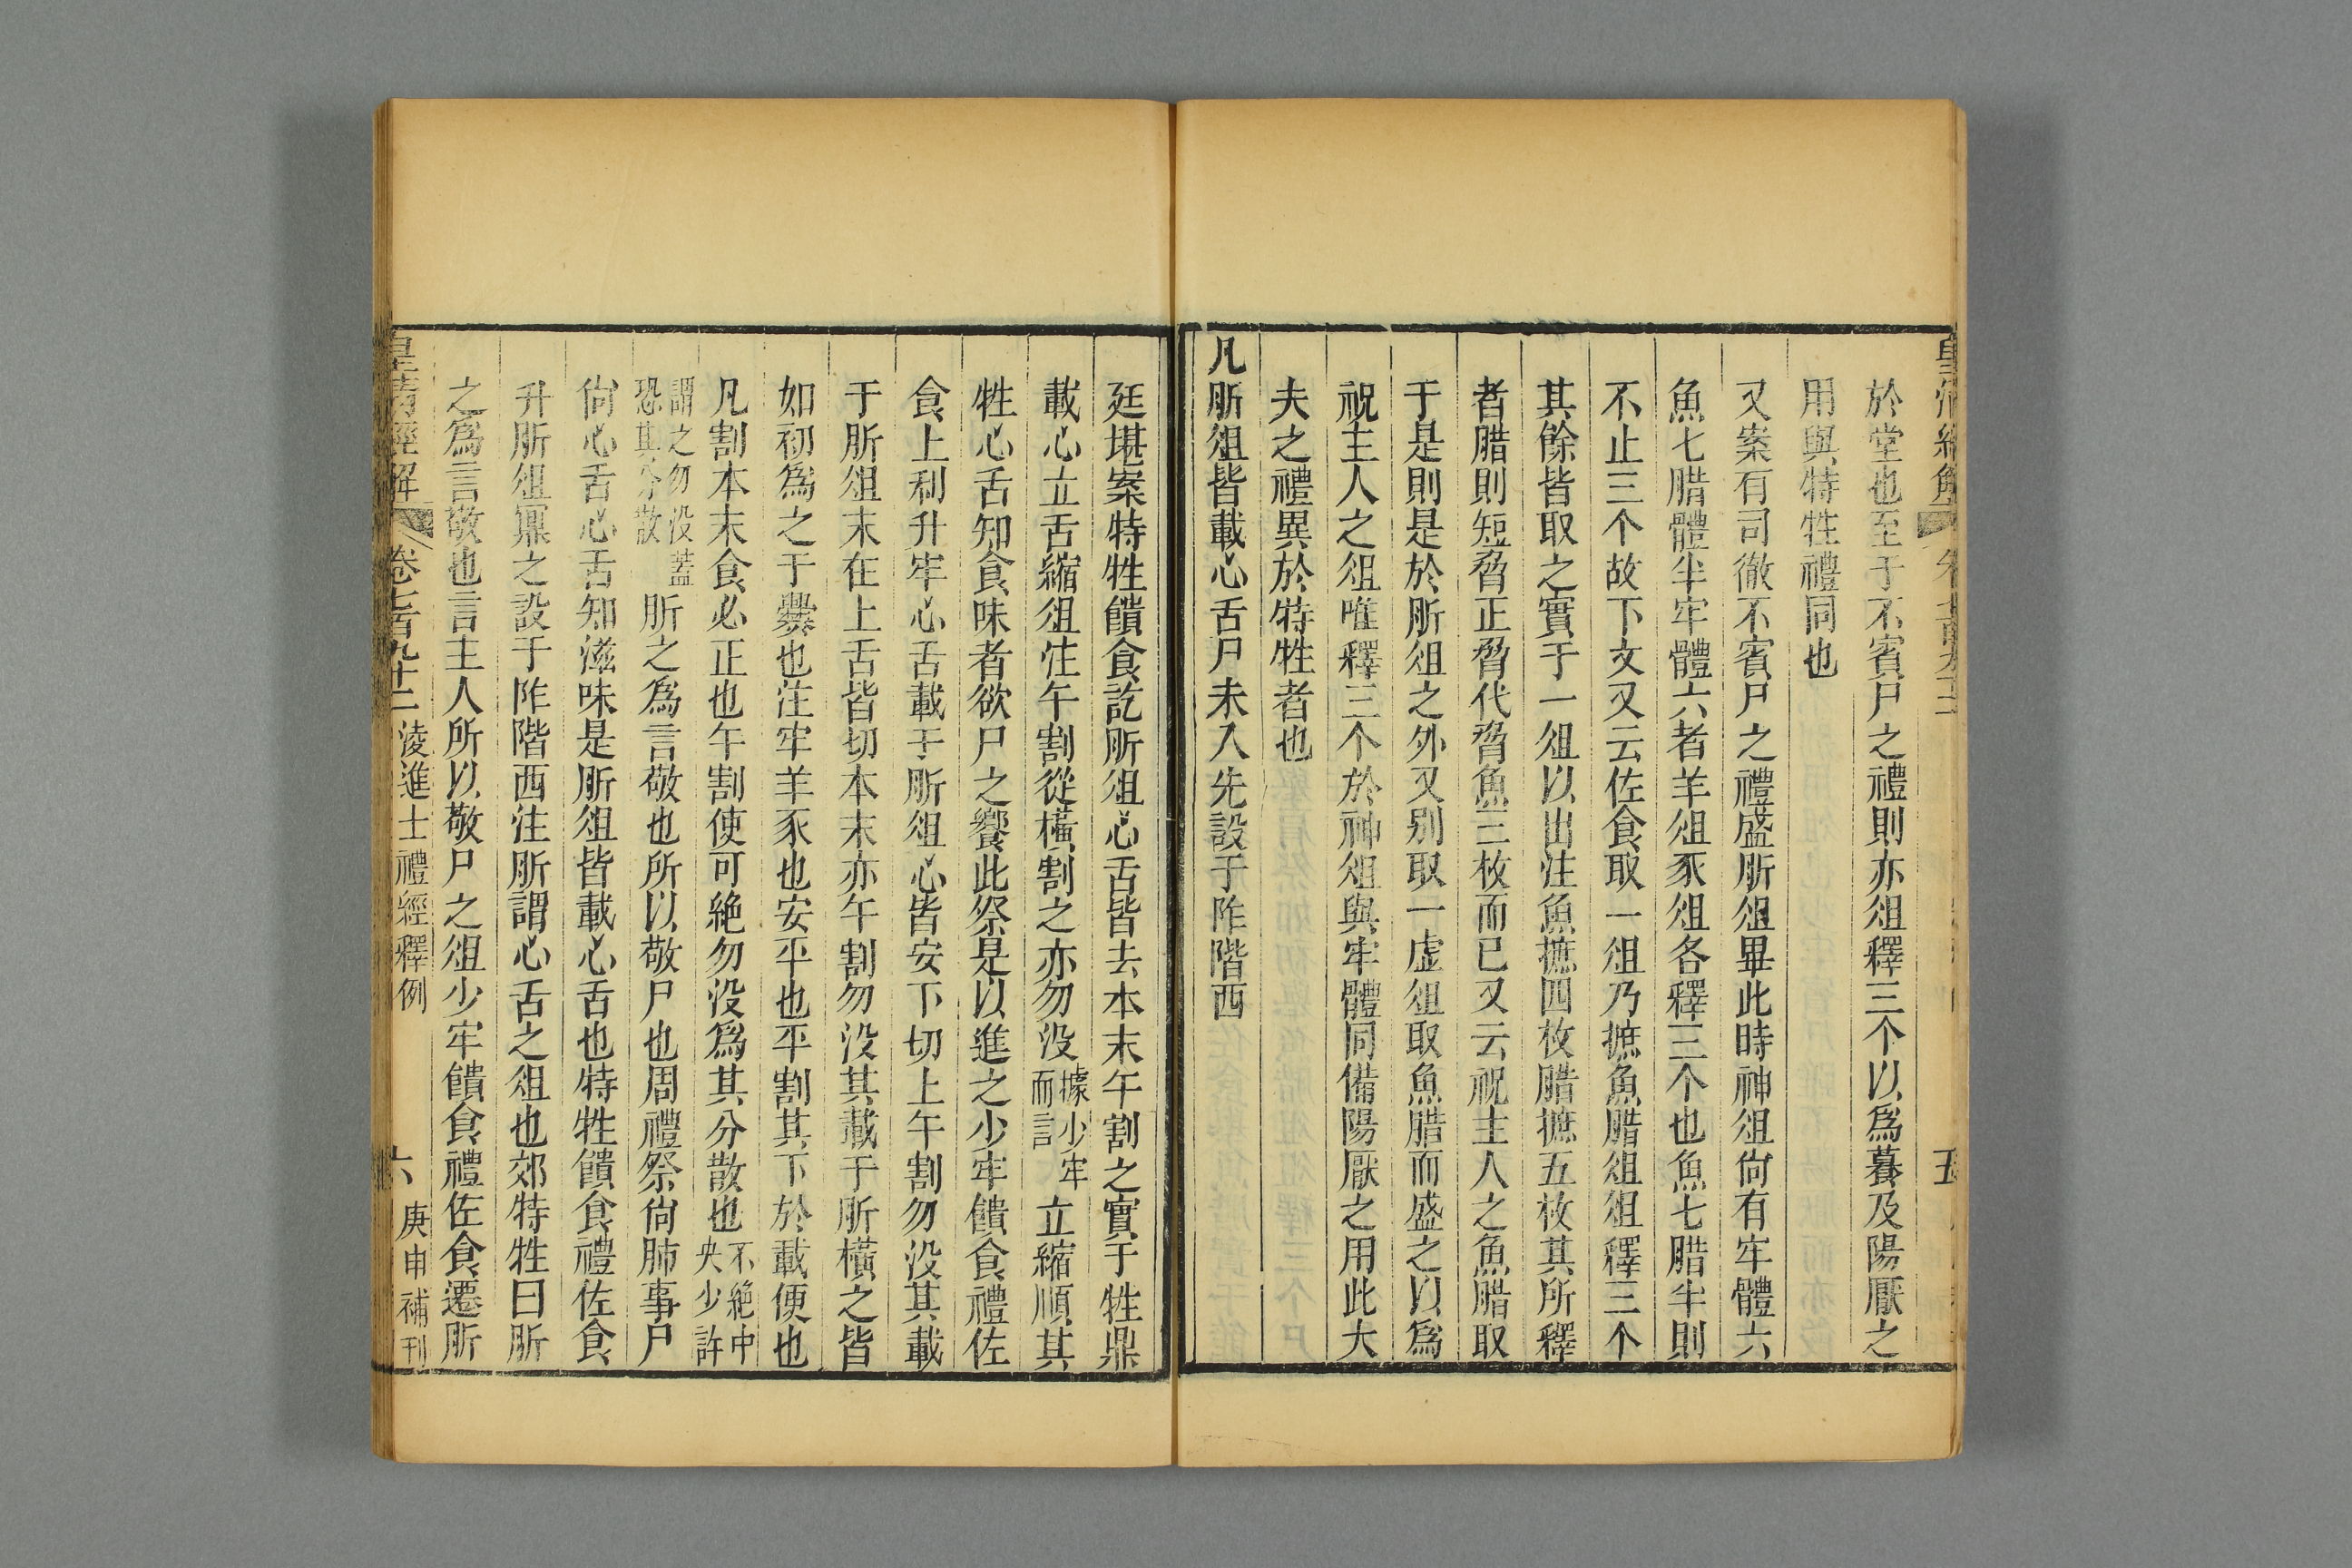 於堂也至于不賓尸之禮則亦俎釋三个以爲暮及陽厭之
用與特牲禮同也
又案有司徹不賓尸之禮盛肵俎畢此時神俎尙有牢體六
魚七腊體半牢體六者羊俎豕俎各釋三个也魚七腊半則
不止三个故下文又云佐食取一俎乃摭魚腊俎俎釋三个
其餘皆取之實于一俎以出注魚摭四枚腊摭五枚其所釋
者腊則短脅正脅代脅魚三枚而已又云祝主人之魚腊取
于是則是於肵俎之外又別取一虛俎取魚腊而盛之以爲
祝主人之俎唯釋三个於神俎與牢體同備陽厭之用此大
夫之禮異於特牲者也
凡肵俎皆載心舌尸未入先設于阼階西
廷堪案特牲饋食記肵俎心舌皆去本末午割之實于牲鼎
載心立舌縮俎注午割從橫割之亦勿沒據少牢而言立縮順其
牲心舌知食味者欲尸之饗此祭是以進之少牢饋食禮佐
食上利升牢心舌載于肵俎心皆安下切上午割勿沒其載
于肵俎末在上舌皆切本末亦午割勿沒其載于肵橫之皆
如初爲之于爨也注牢羊豕也安平也平割其下於載便也
凡割本末食必正也午割使可絶勿沒爲其分散也不絶中央少許
謂之勿沒蓋恐其分散肵之爲言敬也所以敬尸也周禮祭尙肺事尸
尙心舌心舌知滋味是肵俎皆載心舌也特牲饋食禮佐食
升肵俎鼏之設于阼階西注肵謂心舌之俎也郊特牲曰肵
之爲言敬也言主人所以敬尸之俎少牢饋食禮佐食遷肵
皇淸經解 卷七百九十二 淩進士禮經釋例 六 庚申補刊